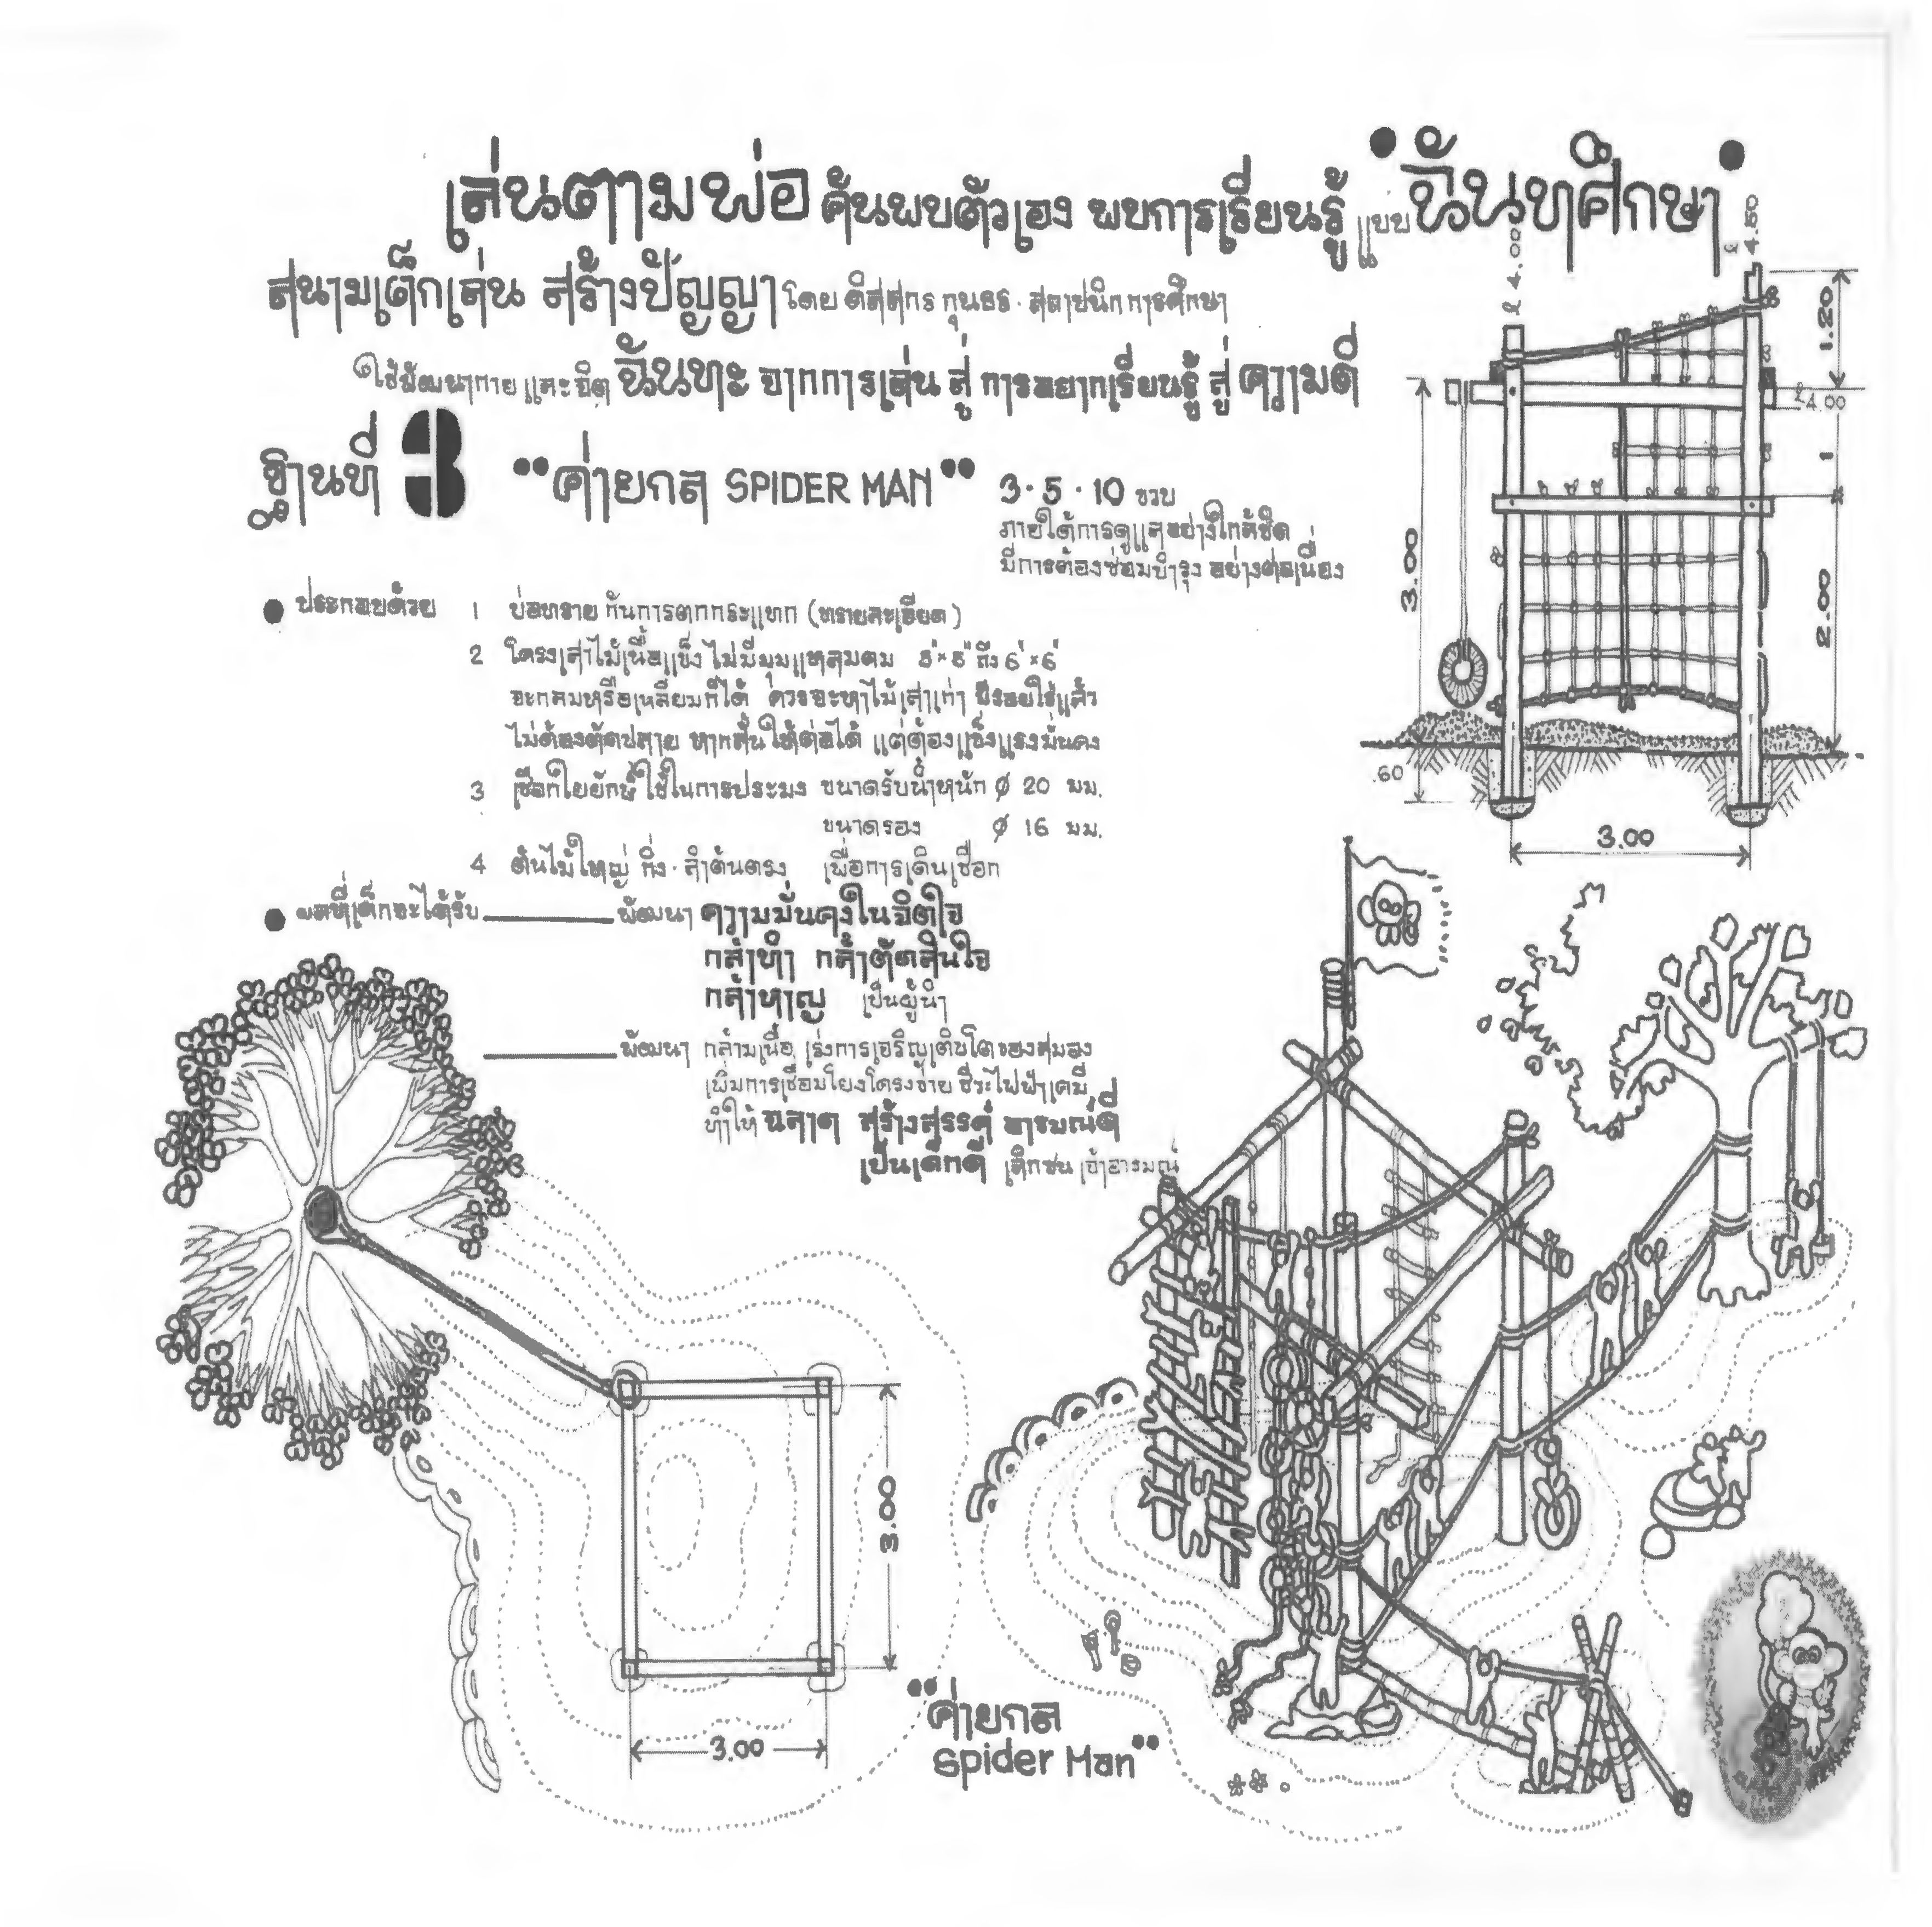 เล่นตามพ่อ ค้นพบตัวเอง พบการเรียนรู้ แบบ "ฉันทศึกษา"
สนามเด็กเล่น สร้างปัญญา โดย ดิสสกร กุนธร · สถาปนิกการศึกษา
ใช้พัฒนากาย และจิต ฉันทะ จากการเล่น สู่ การอยากเรียนรู้ สู่ ความดี
ฐานที่ 3 "ค่ายกล SPIDER MAN" 3·5·10 ขวบ
ภายใต้การดูแลอย่างใกล้ชิด
มีการต้องซ่อมบำรุง อย่างต่อเนื่อง
● ประกอบด้วย 1 บ่อทราย กันการตกกระแทก (ทรายละเอียด)
2 โครงเสาไม้เนื้อแข็ง ไม่มีมุมแหลมคม 5"×5" ถึง 6"×6"
จะกลมหรือเหลี่ยมก็ได้ ควรจะหาไม้เสาเก่า มีรอยใช้แล้ว
ไม่ต้องตัดปลาย หากสั้นให้ต่อได้ แต่ต้องแข็งแรงมั่นคง
3 เชือกใยยักษ์ ใช้ในการประมง ขนาดรับน้ำหนัก ø 20 มม.
ขนาดรอง ø 16 มม.
4 ต้นไม้ใหญ่ กิ่ง · ลำต้นตรง เพื่อการเดินเชือก
● ผลที่เด็กจะได้รับ พัฒนา ความมั่นคงในจิตใจ
กล้าทำ กล้าตัดสินใจ
กล้าหาญ เป็นผู้นำ
พัฒนา กล้ามเนื้อ เร่งการเจริญเติบโตของสมอง
เพิ่มการเชื่อมโยงโครงข่าย ชีวะไฟฟ้าเคมี
ทำให้ ฉลาด สร้างสรรค์ อารมณ์ดี
เป็นเด็กดี เลิกซน เจ้าอารมณ์
4.00
4.50
1.20
4.00
1
3.00
2.00
.60
3.00
3.00
3.00
"ค่ายกล
Spider Man"